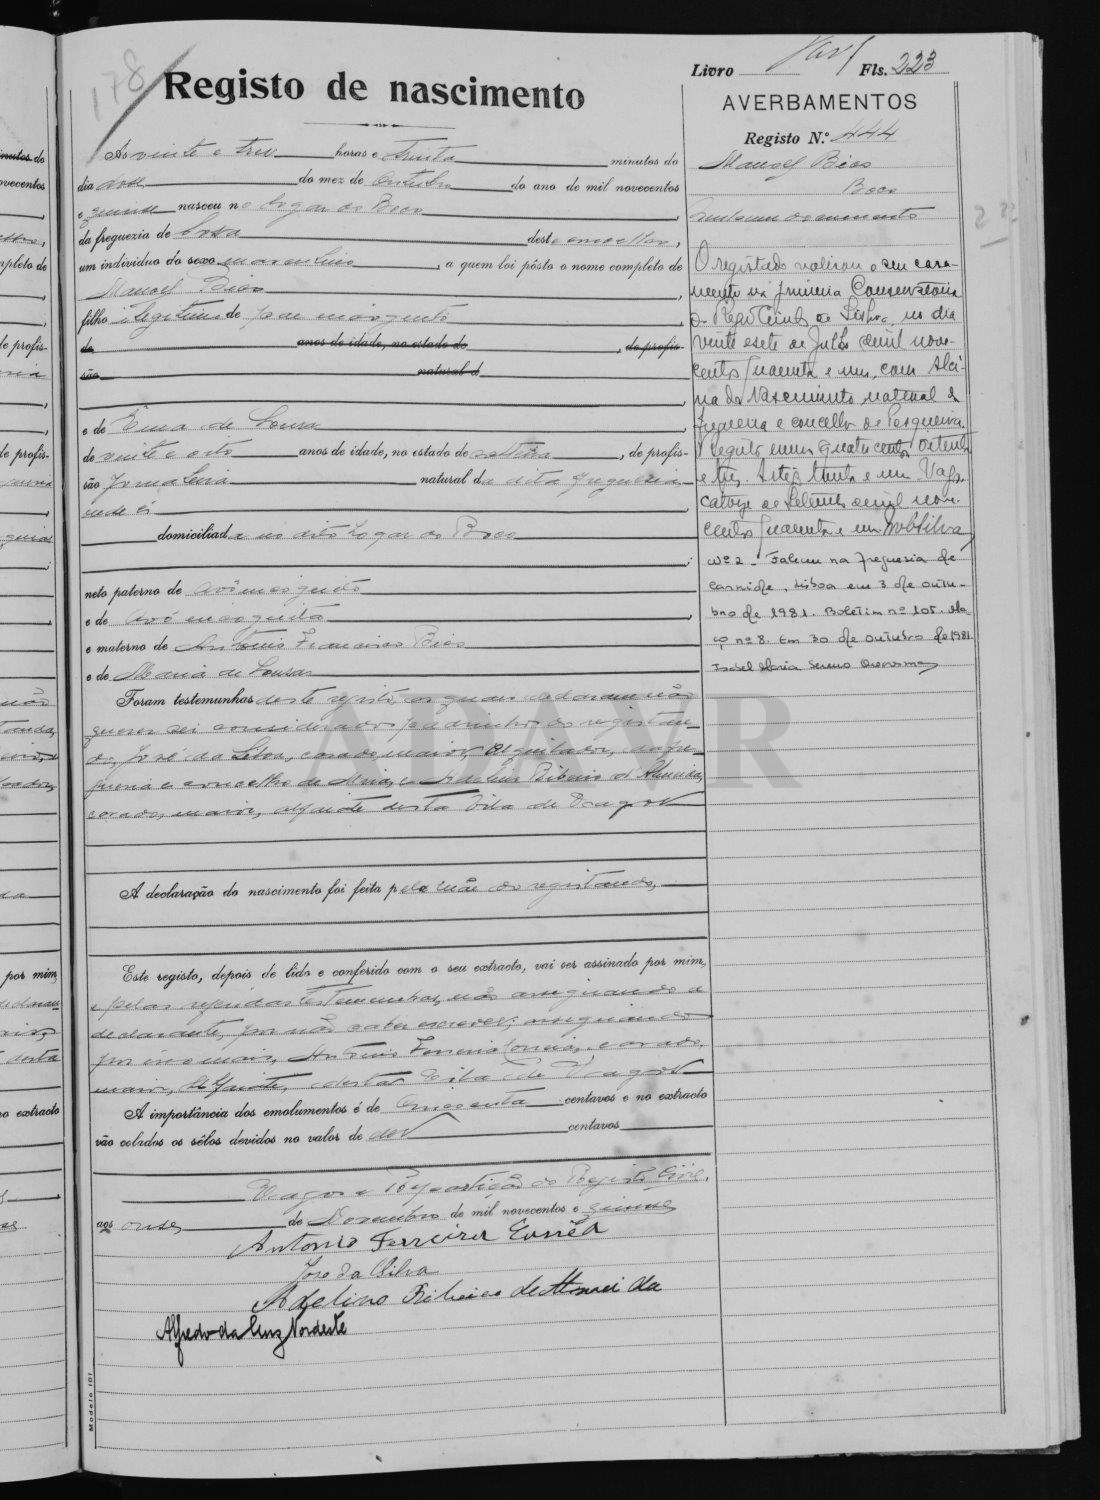 178
Livro Fls. 223
Registo de nascimento
AVERBAMENTOS
Registo N.º 444
Manoel Bios
Boco
As vinte e tres horas e trinta minutos do
dia dose do mez de Outubro do ano de mil novecentos
e quinse nasceu no logar do Boco
da freguezia de Sosa deste concelho,
um individuo do sexo masculino, a quem foi pôsto o nome completo de
Manoel Bios
filho ilegitimo de pae incognito
de anos de idade, no estado de , de profis-
são natural d
e de Ema de Sousa
de vinte e oito anos de idade, no estado de solteira, de profis-
são Jornaleira natural da dita freguezia
domiciliada no dito logar do Boco
neto paterno de avô incognito
e de avó incognita
e materno de Antonio Francisco Bios
e de Maria de Sousa
Foram testemunhas deste registo, os quaes declararam não
querer ser considerados padrinhos do registan-
do, José da Silva, casado, maior, da fre-
guezia e concelho de e Adelino Ribeiro d'Almeida,
casado, maior, alfaiate desta Vila de Vagos
A declaração do nascimento foi feita pela mãe do registando,
Este registo, depois de lido e conferido com o seu extracto, vai ser assinado por mim,
e pelas referidas testemunhas, não assignando a
declarante, por não saber escrever; assignando
por ella Antonio Ferreira Corrêa, casado,
maior, desta Vila de Vagos
A importância dos emolumentos é de cincoenta centavos e no extracto
vão colados os sêlos devidos no valor de dez centavos
Vagos e Repartição do Registo Civil,
aos onse de Novembro de mil novecentos e quinse
Antonio Ferreira Corrêa
José da Silva
Adelino Ribeiro de Almeida
Alfredo da Cruz Nordeste
Modelo 101
O registado realisou o seu casa-
mento na primeira Conservatoria
do Registo Civil de Lisboa, no dia
vinte e sete de Julho de mil nove-
centos quarenta e um, com Alci-
na do Nascimento natural da
freguesia e concelho de Pesqueira.
Registo numero quatrocentos oitenta
e tres. trinta e um. Vagos,
catorze de Setembro de mil nove-
centos quarenta e um
Nº 2 - Faleceu na freguesia de
Carnide, Lisboa em 3 de outu-
bro de 1981. Boletim nº 105. Ma-
ço nº 8. Em 30 de outubro de 1981
Isabel Maria Sereno Quaresma
ADAVR